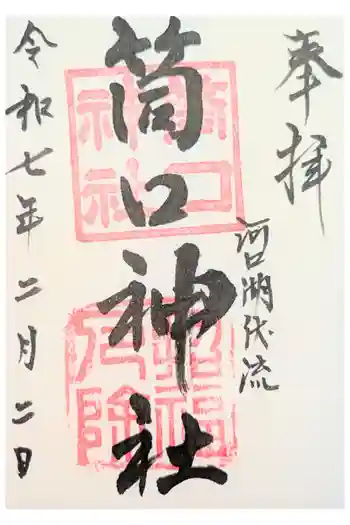 奉拝
河口湖伏流
筒口神社
令和七年二月二日